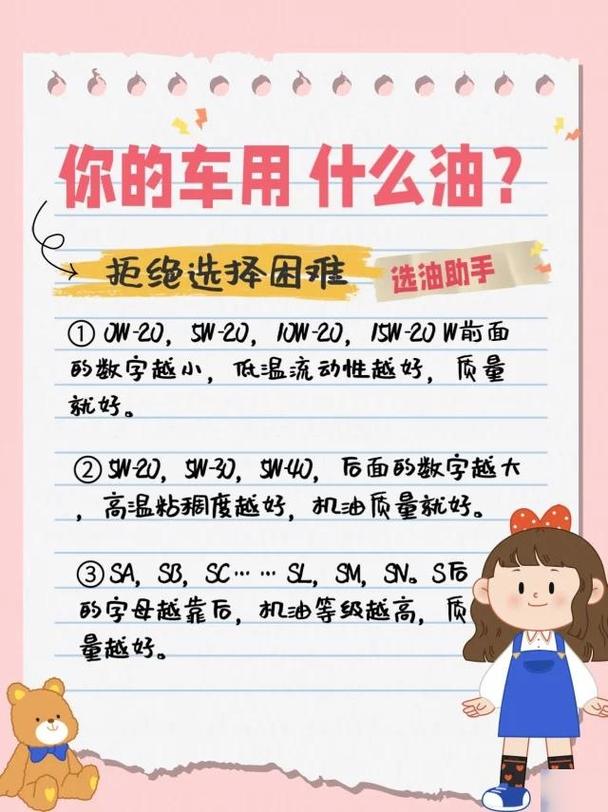 你的车用 什么油?
拒绝选择困难
选油助手
① 0W-20, 5W-20, 10W-20, 15W-20 W前面
的数字越小, 低温流动性越好, 质量
就好。
② 5W-20, 5W-30, 5W-40, 后面的数字越大
, 高温粘稠度越好, 机油质量就好。
③ SA, SB, SC……SL, SM, SN。S后
的字母越靠后, 机油等级越高, 质
量越好。